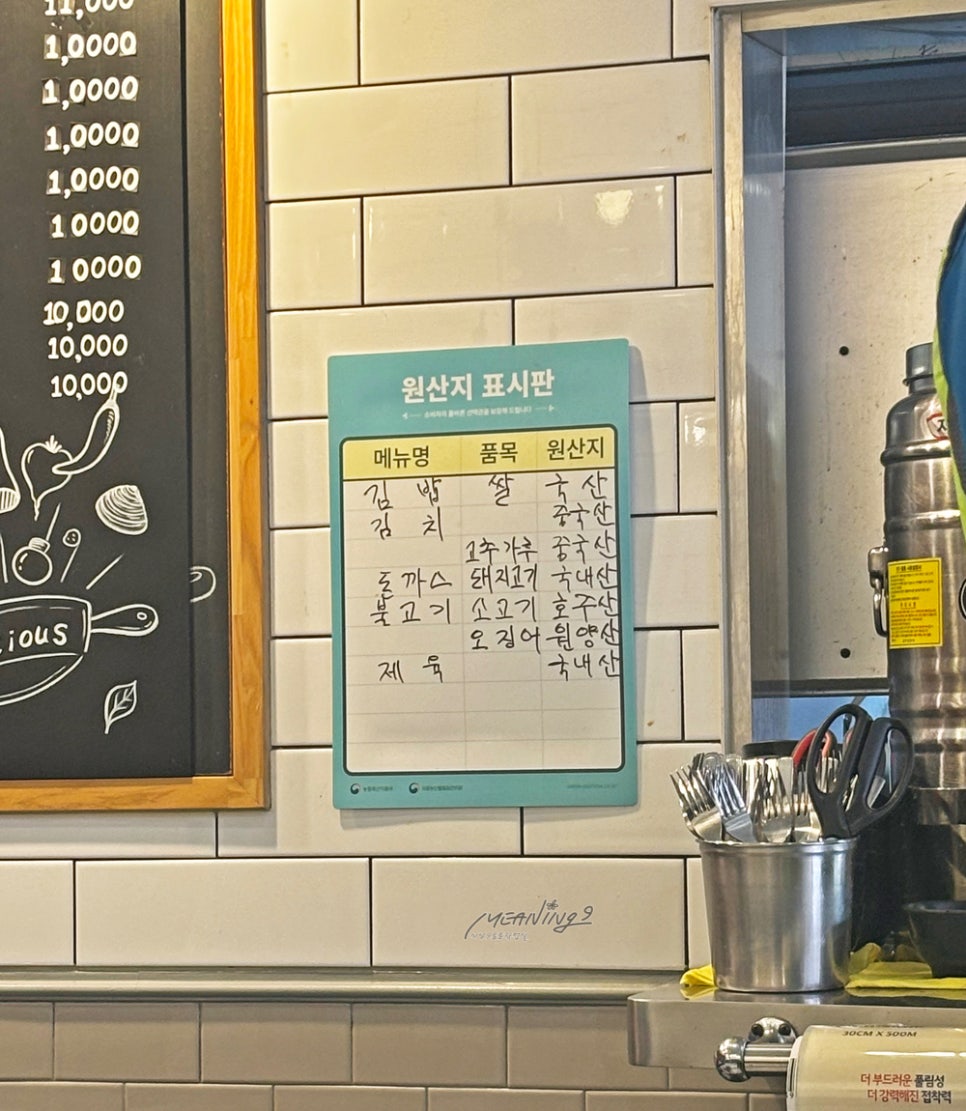 11,000
1,0000
1,0000
1,0000
1,0000
10000
10000
10,000
10,000
10,000
ious
원산지 표시판
소비자의 올바른 선택권을 보장해 드립니다
메뉴명 품목 원산지
김 밥 쌀 국 산
김 치 중국산
고추가루 중국산
돈까스 돼지고기 국내산
불고기 소고기 호주산
오징어 원양산
제 육 국내산
MEANING9
30CM X 500M
더 부드러운 풀림성
더 강력해진 접착력